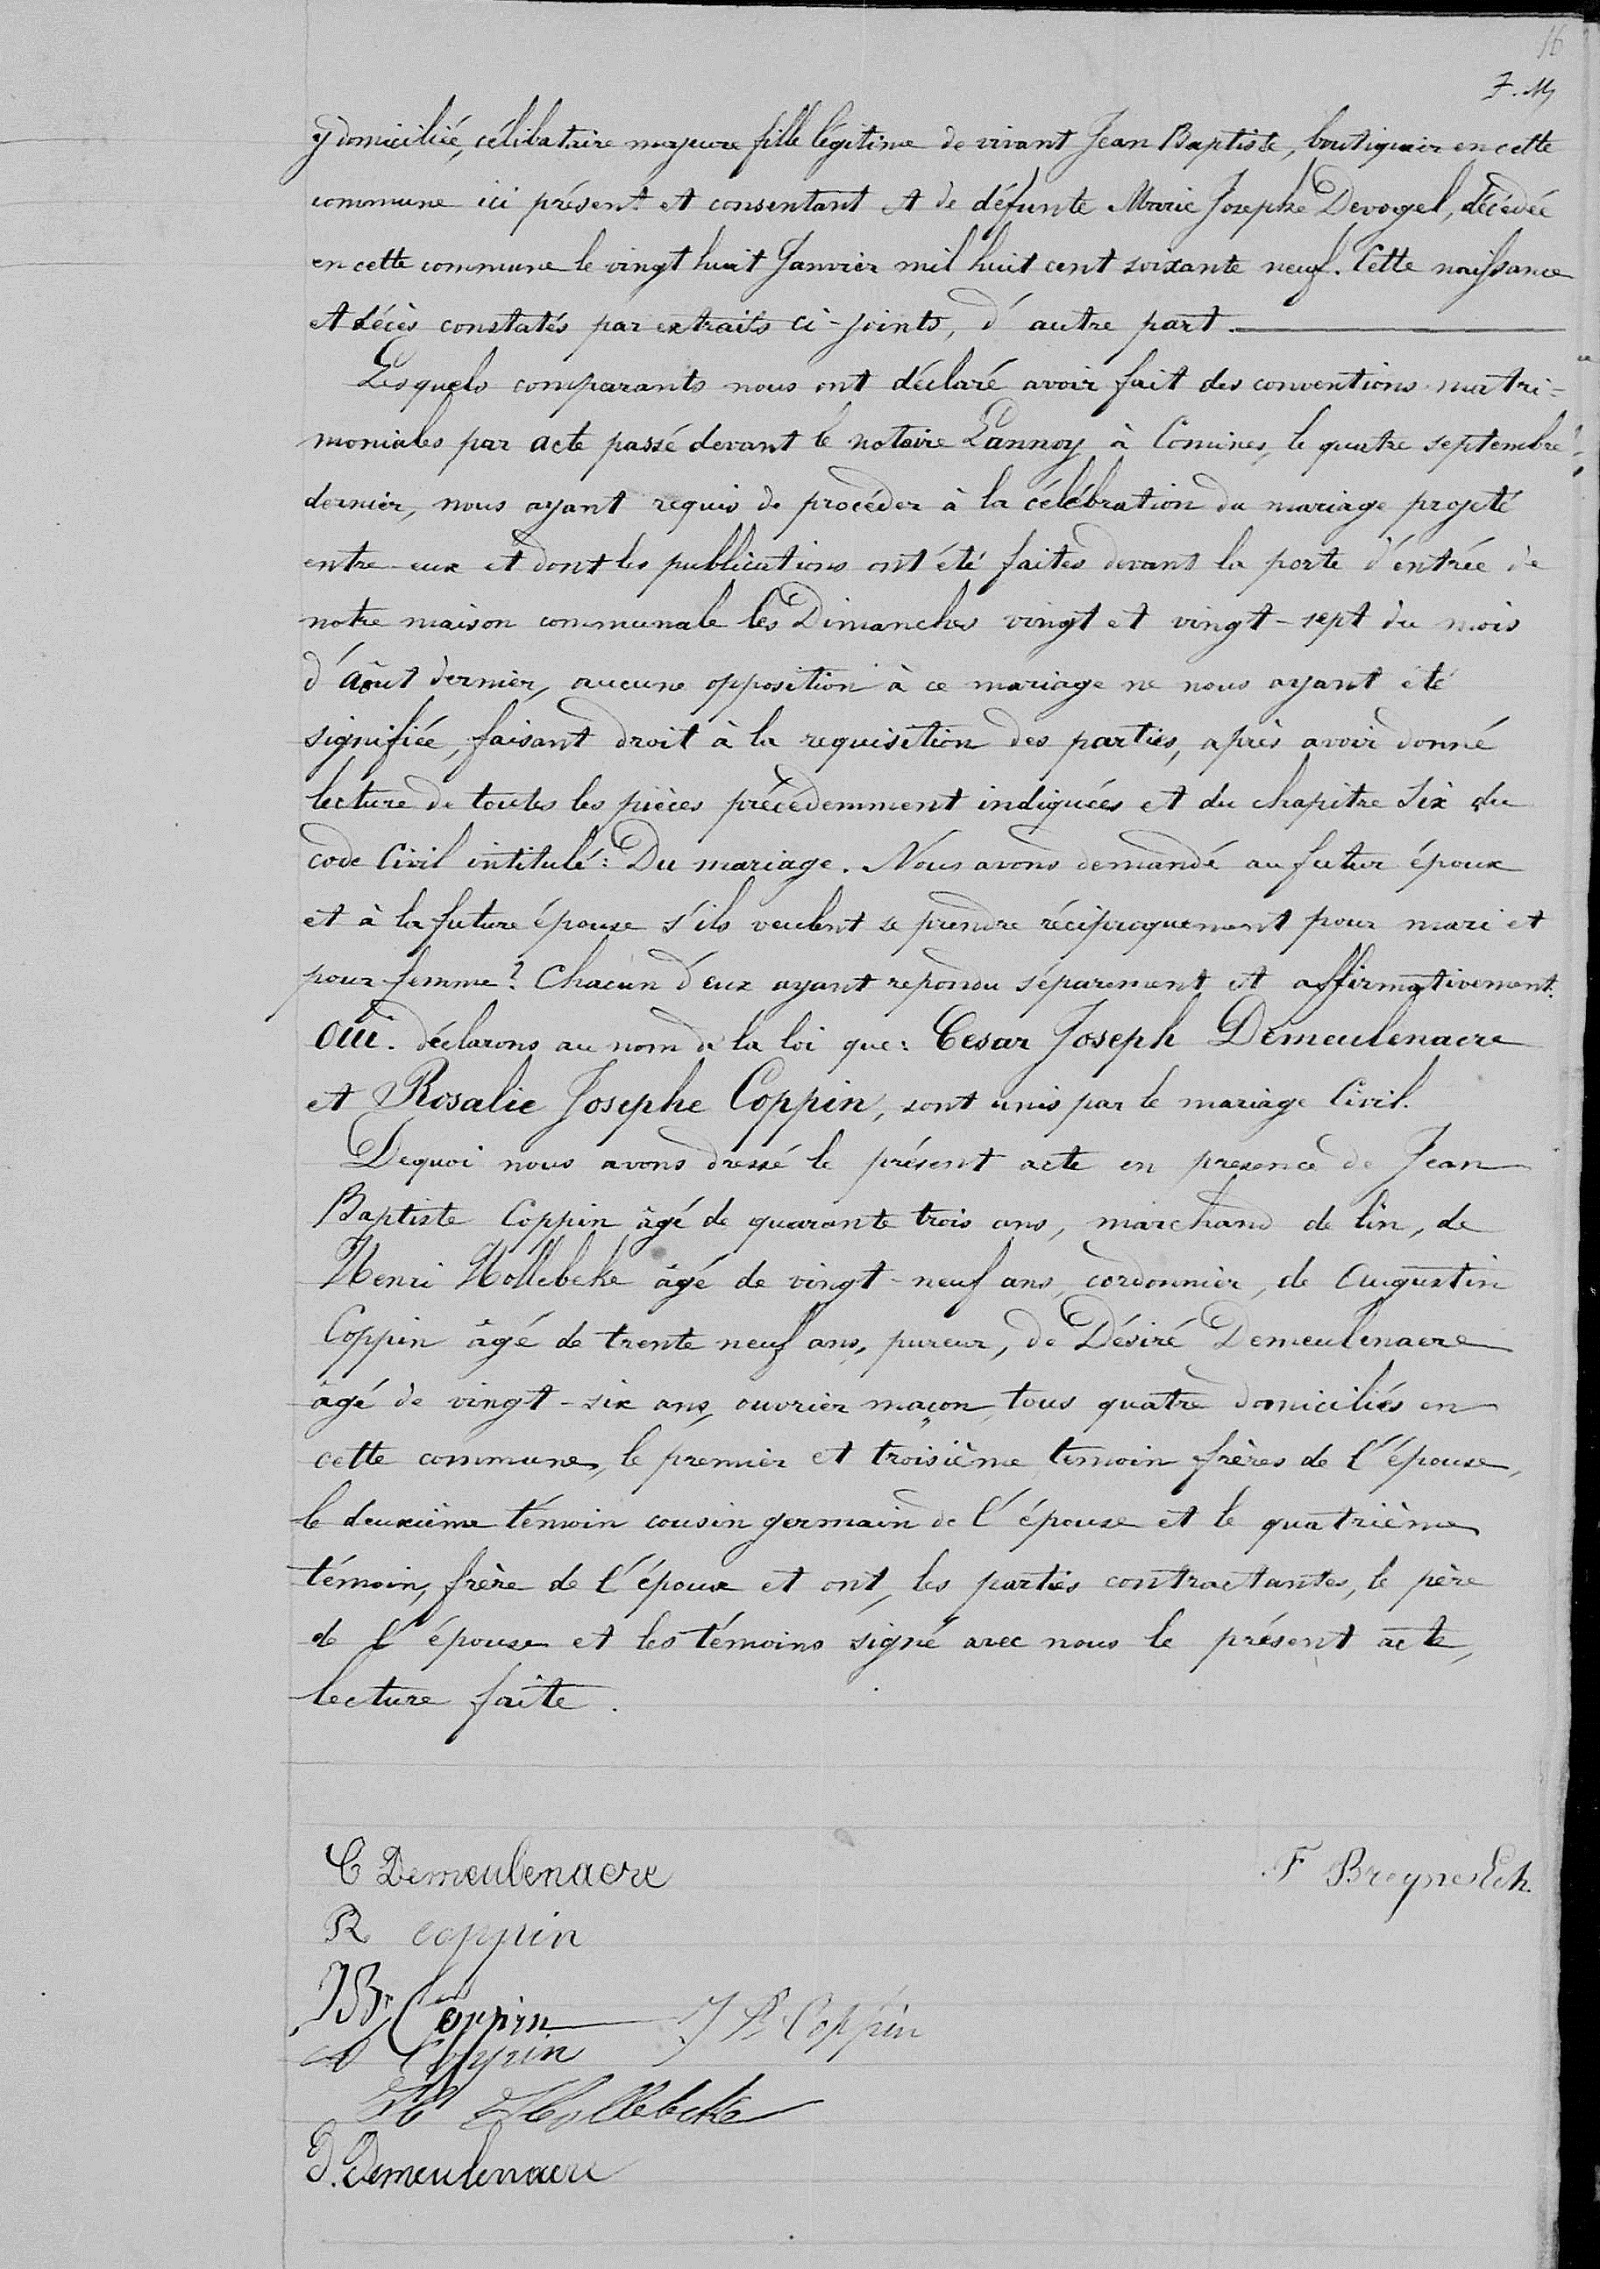 16
F. M,
y domiciliée, célibataire majeure fille légitime de vivant Jean Baptiste, boutiquier en cette
commune ici présent et consentant et de défunte Marie Josephe Devogel, décédée
en cette commune le vingt huit Janvier mil huit cent soixante neuf. Cette naissance
et décès constatés par extraits ci-joints, d'autre part.
Lesquels comparants nous ont déclaré avoir fait des conventions matri=
moniales par acte passé devant le notaire Lannoy à Comines, le quatre septembre
dernier, nous ayant requis de procéder à la célébration du mariage projeté
entre eux et dont les publications ont été faites devant la porte d'entrée de
notre maison communale les Dimanches vingt et vingt-sept du mois
d'août dernier, aucune opposition à ce mariage ne nous ayant été
signifiée, faisant droit à la requisition des parties, après avoir donné
lecture de toutes les pièces précédemment indiquées et du chapitre Six du
code Civil intitulé: Du mariage. Nous avons demandé au futur époux
et à la future épouse s'ils veulent se prendre réciproquement pour mari et
pour femme? Chacun d'eux ayant repondu séparement et affirmativement:
Oui. déclarons au nom de la loi que: Cesar Joseph Demeulenaere
et Rosalie Josephe Coppin, sont unis par le mariage Civil.
Dequoi nous avons dressé le présent acte en presence de Jean
Baptiste Coppin âgé de quarante trois ans, marchand de lin, de
Henri Hollebeke âgé de vingt-neuf ans, cordonnier, de Augustin
Coppin âgé de trente neuf ans, pureur, de Désiré Demeulenaere
âgé de vingt-six ans, ouvrier maçon, tous quatre domiciliés en
cette commune, le premier et troisième temoin frères de l'épouse,
le deuxième témoin cousin germain de l'épouse et le quatrième
témoin, frère de l'époux et ont, les parties contractantes, le père
de l'épouse et les témoins signé avec nous le présent acte,
lecture faite.
C Demeulenaere F Breyne Ech.
R coppin
JBte Coppin J B Coppin
A Coppin
H Hollebeke
D. Demeulenaere